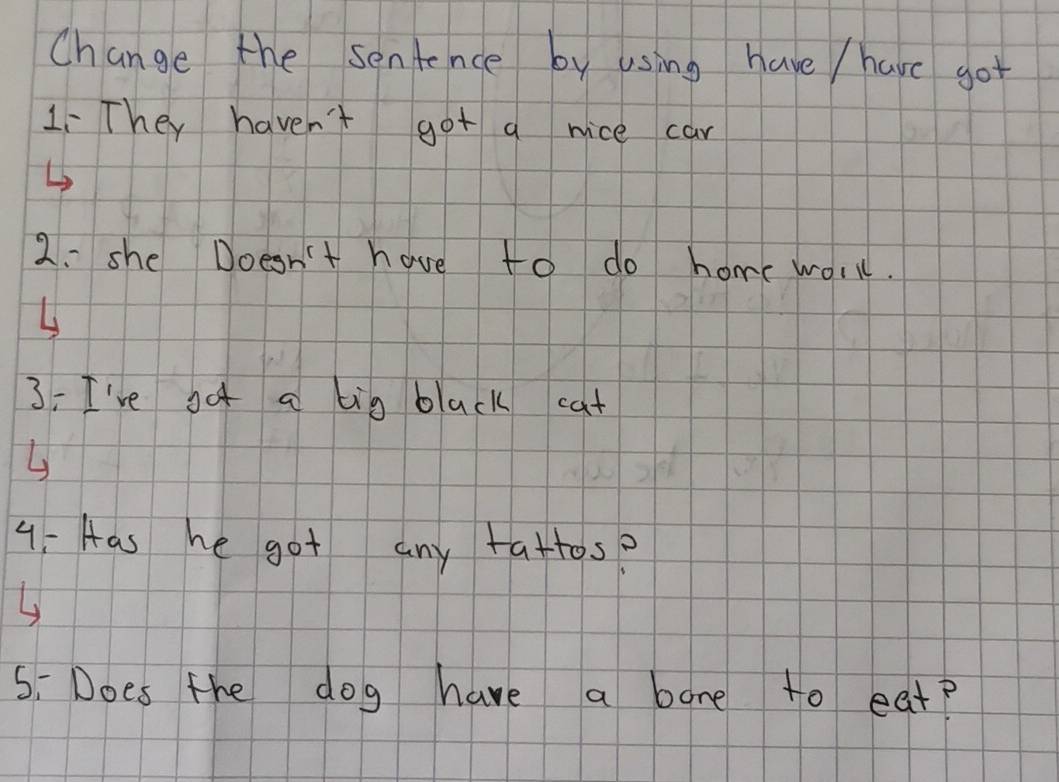 Change the sentence by using have/have got
1.- They haven't got a nice car
↳
2.- she Doesn't have to do home work.
↳
3.- I've got a big black cat
↳
4.- Has he got any tattos?
↳
5.- Does the dog have a bone to eat?